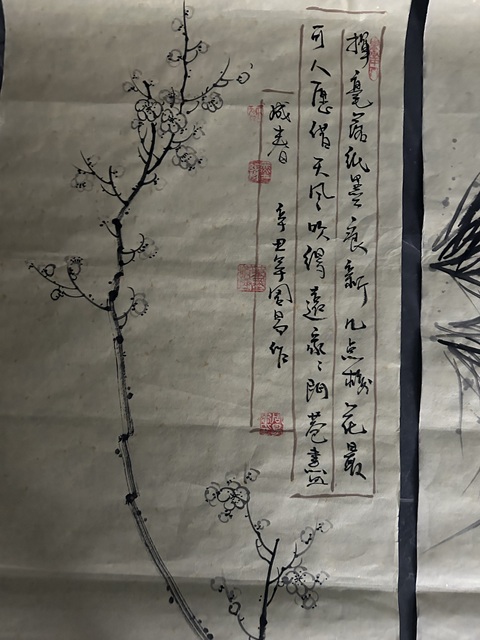 揮毫落紙墨痕新几点梅花最
可人愿借天风吹得遠家々門巷盡
成春
辛丑年国昌作